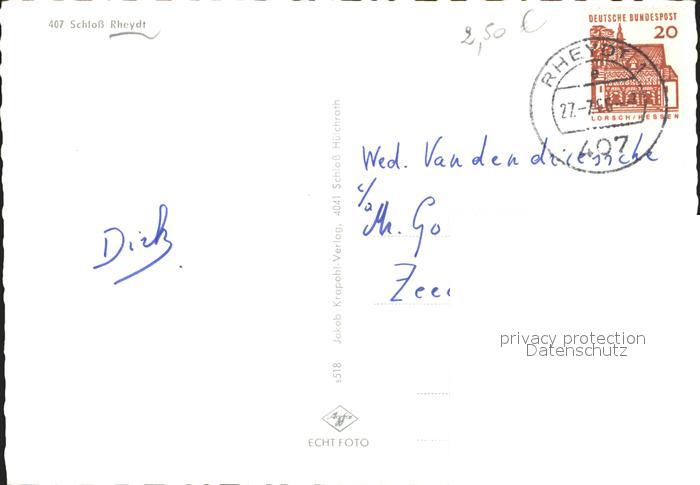 407 Schloß Rheydt
2,50 €
DEUTSCHE BUNDESPOST
20
LORSCH/HESSEN
RHEYDT 1
e
407
Wed. Vandendriessche
c/o
Mr. Go
Zee
Dirk
s518 Jakob Krapohl-Verlag, 4041 Schloß Hülchrath
Agfa
ECHT FOTO
privacy protection
Datenschutz